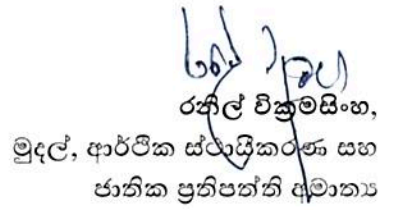 රනිල් වික්‍රමසිංහ,
මුදල්, ආර්ථික ස්ථායීකරණ සහ
ජාතික ප්‍රතිපත්ති අමාත්‍ය